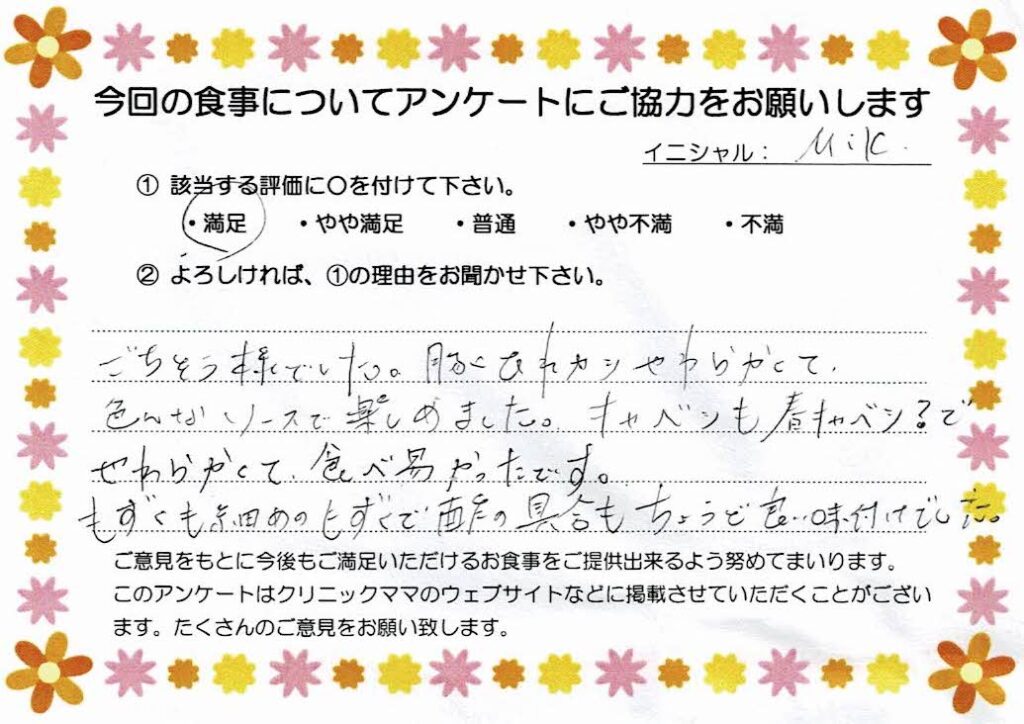 今回の食事についてアンケートにご協力をお願いします
イニシャル： M.K.
① 該当する評価に〇を付けて下さい。
・満足 ・やや満足 ・普通 ・やや不満 ・不満
② よろしければ、①の理由をお聞かせ下さい。
ごちそう様でした。豚ひれカツやわらかくて、
色んなソースで楽しめました。キャベツも春キャベツ で
やわらかくて、食べ易かったです。
もずくも細めのもずくで酢の具合もちょうど良い味付けでした。
ご意見をもとに今後もご満足いただけるお食事をご提供出来るよう努めてまいります。
このアンケートはクリニックママのウェブサイトなどに掲載させていただくことがござい
ます。たくさんのご意見をお願い致します。